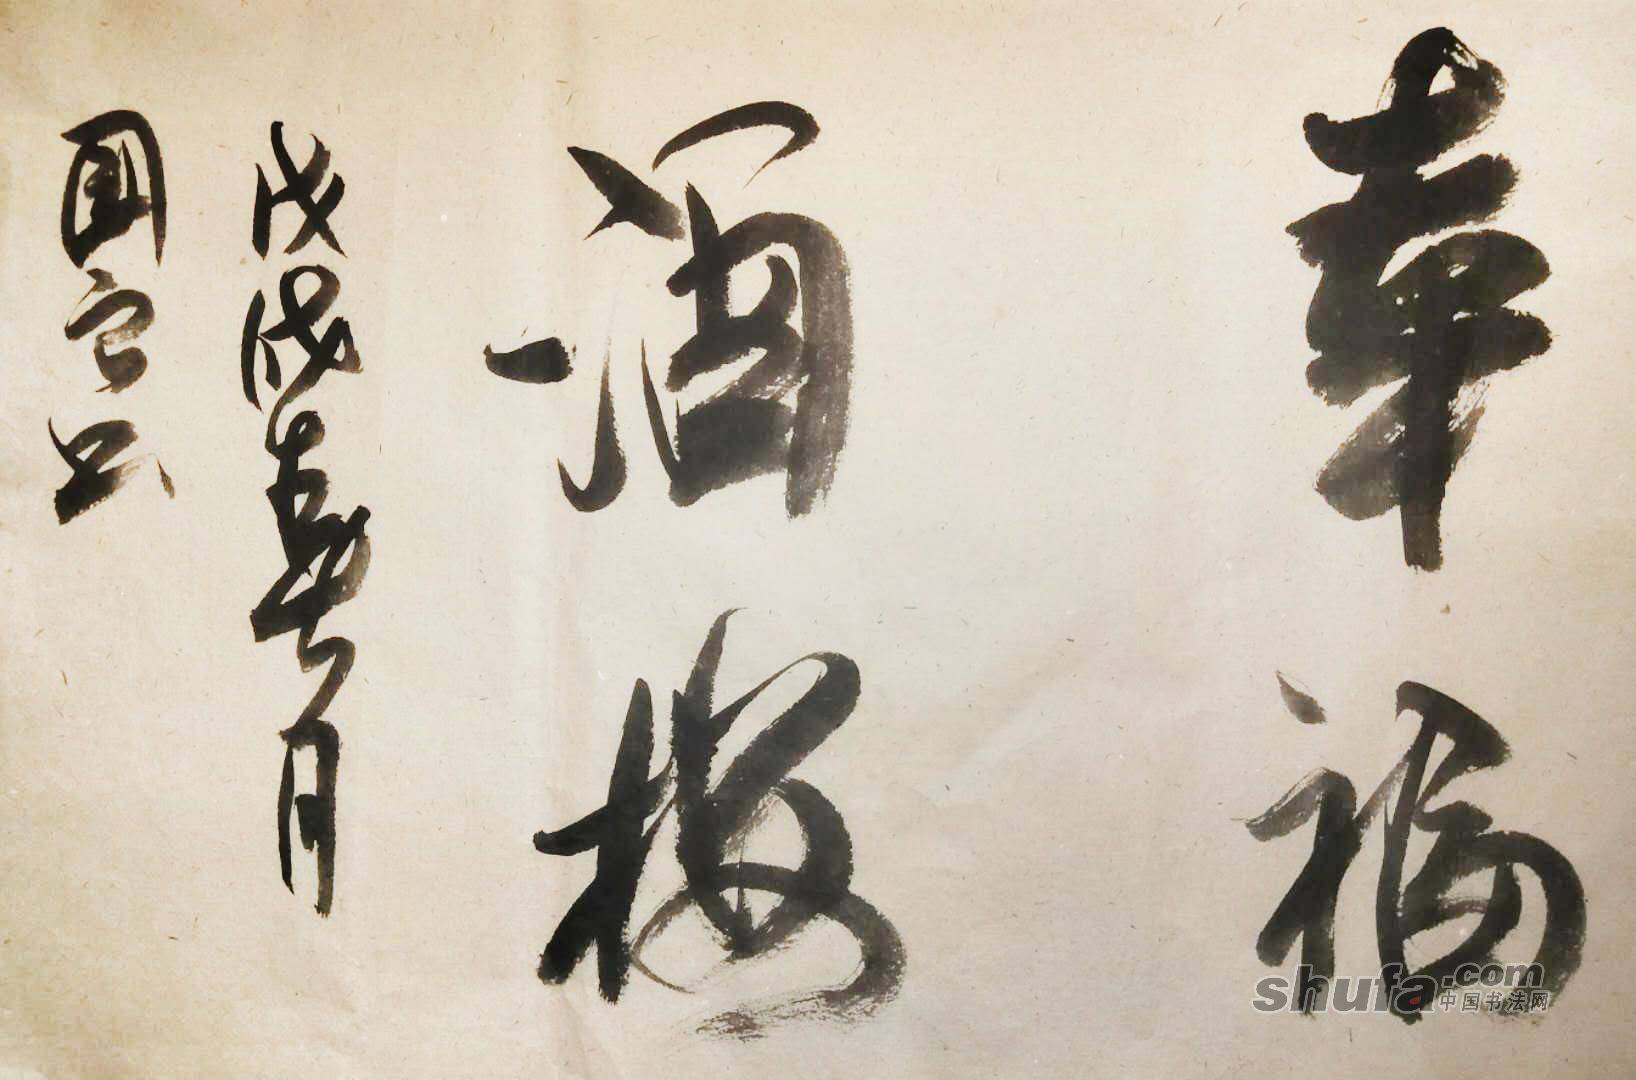 華福
酒楼
戊戌月
国书
shufa.com
中国书法网